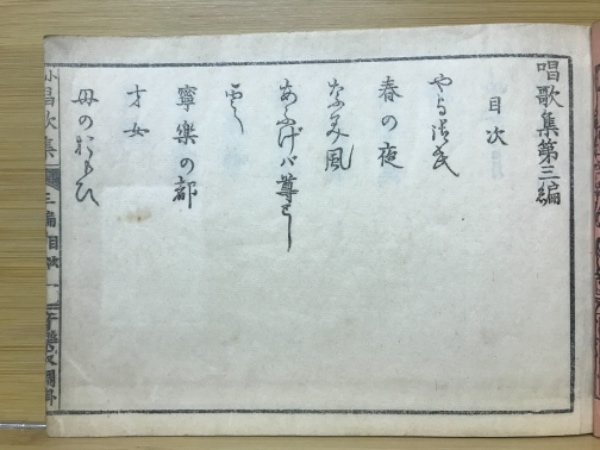 唱歌集第三編
目次
やよ御民
春の夜
なみ風
あふげバ尊とし
雲
寧樂の都
才女
母のおもひ
唱歌集
三編目次
一